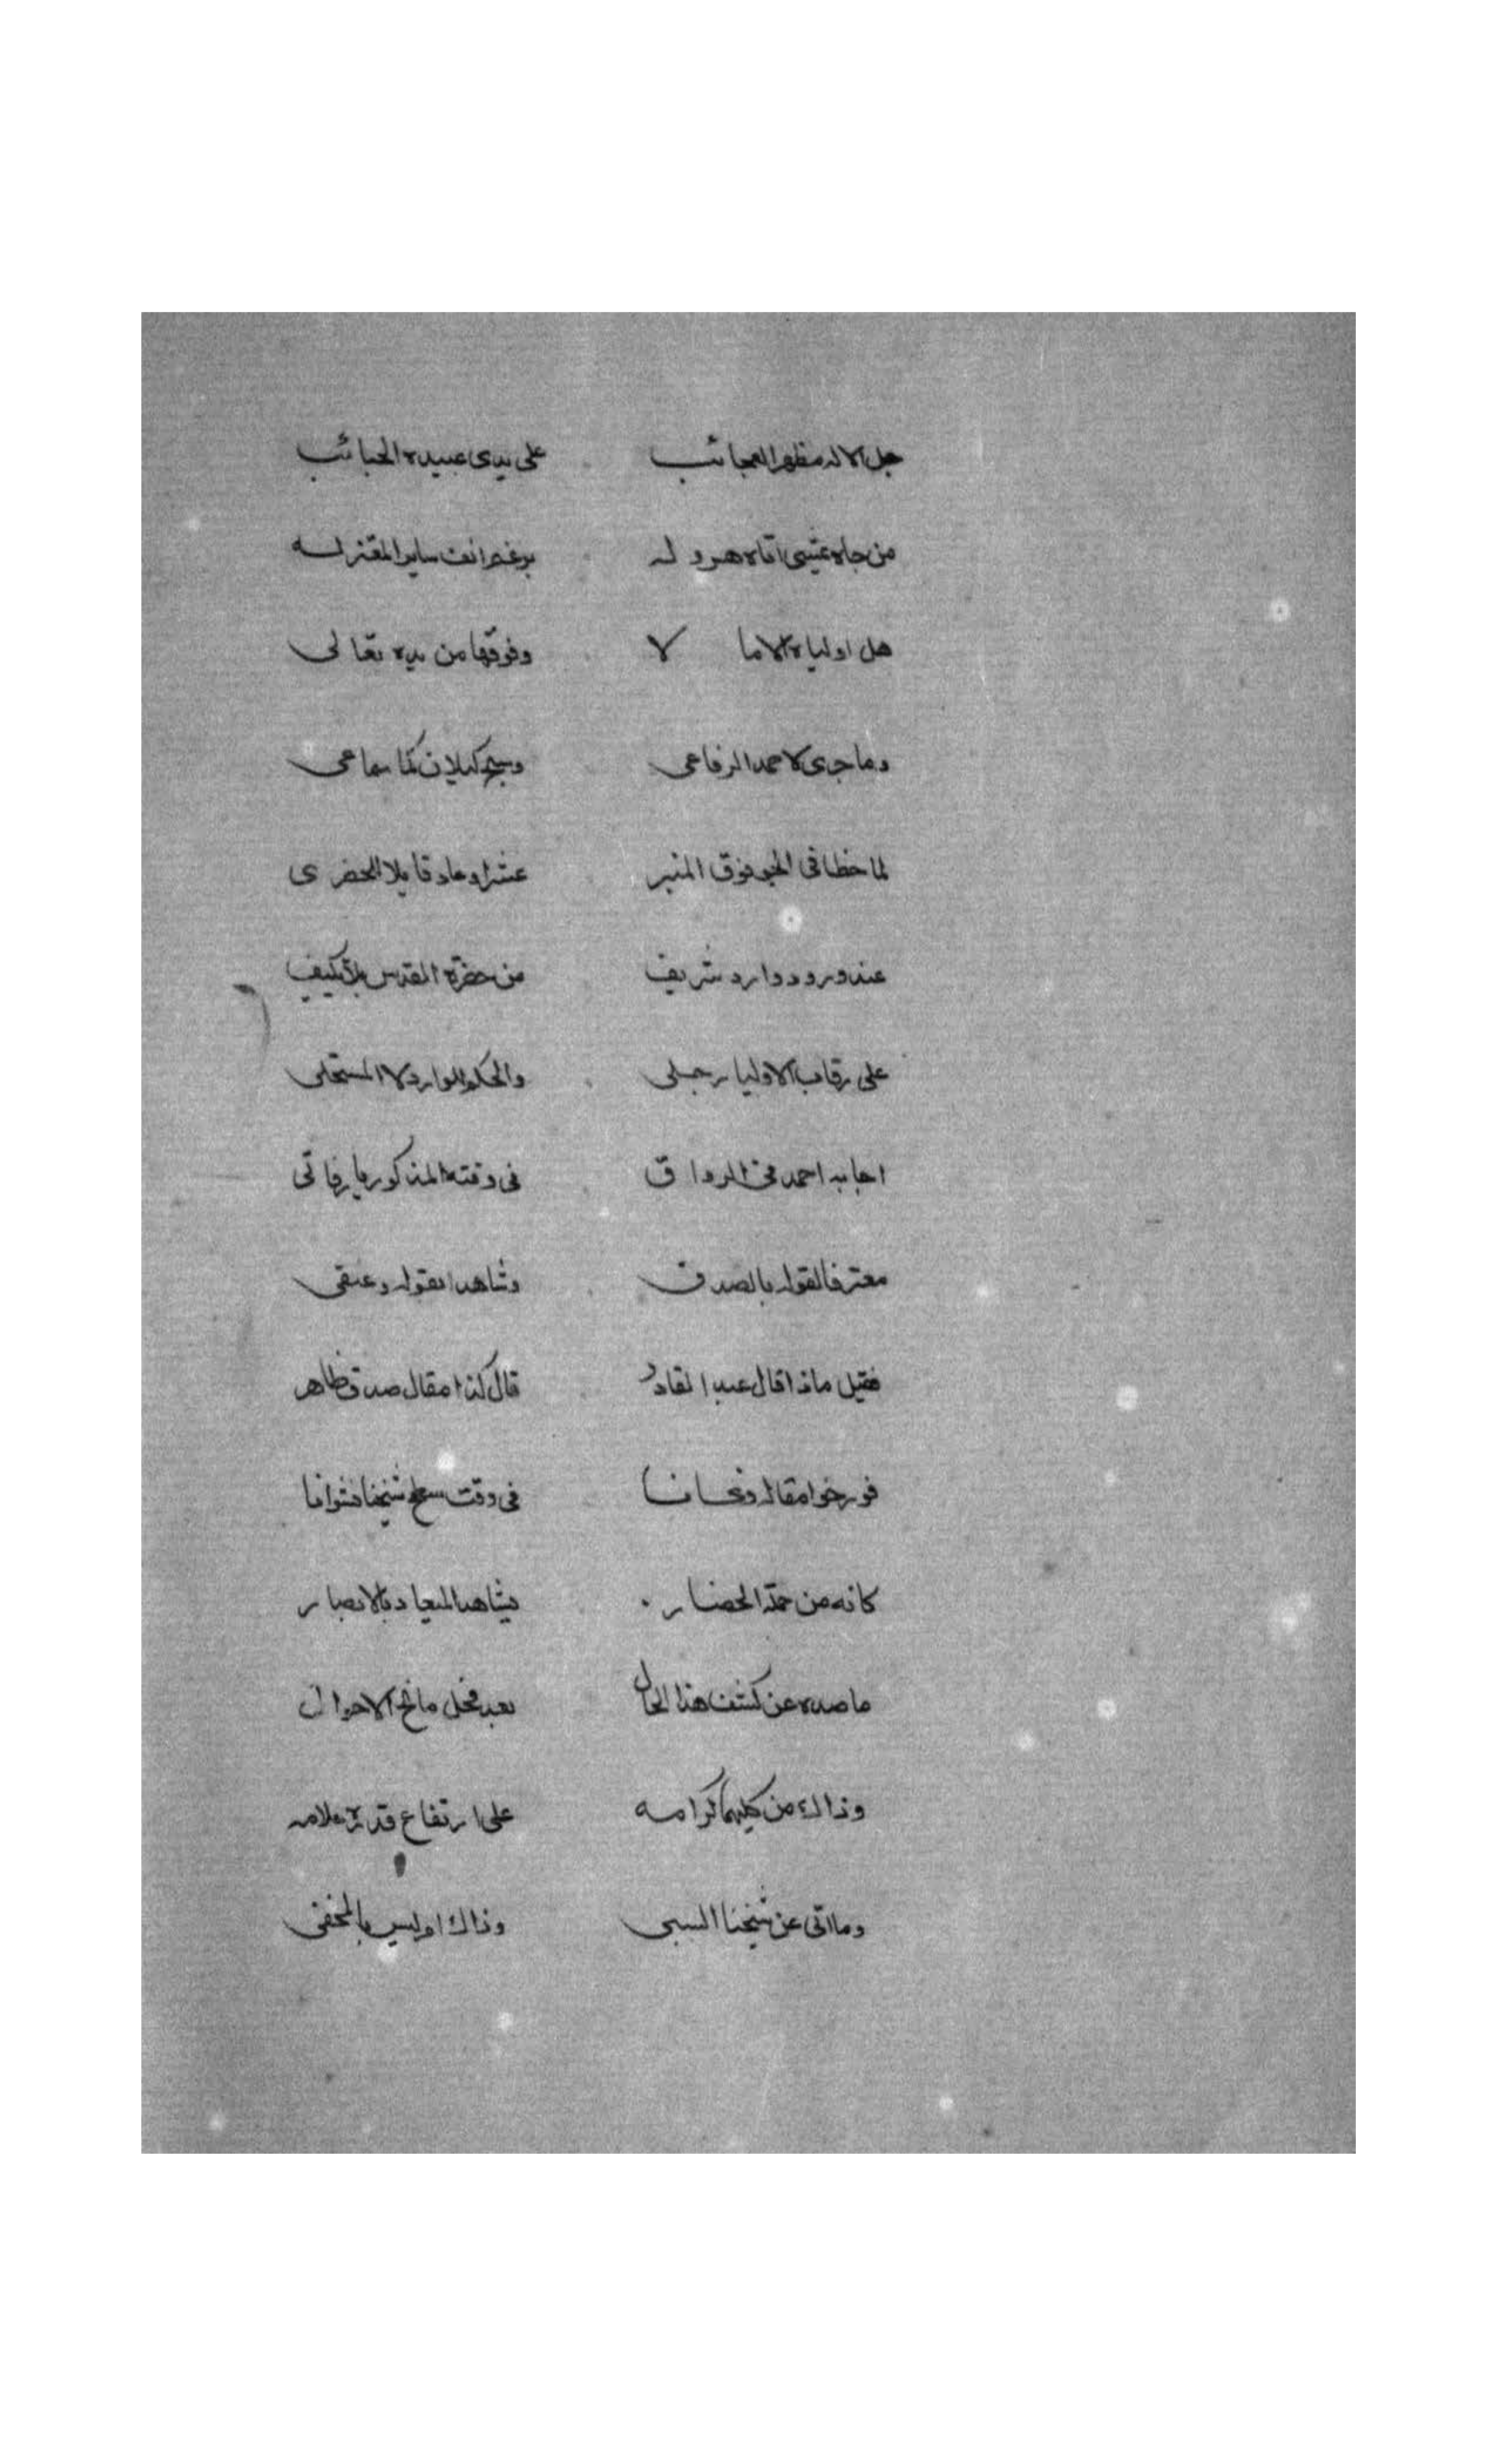 جل الاله مظهر العجائب على يدى عبيده الحبائب
من جاه يمشى اتاه هروله برغم انف ساير المعتزله
هل اولياه الاما لا وفوقها من يده تعالى
وما جرى لاحمد الرفاعى وشيخ كيلان كما سماعى
لما خطا فى الجو فوق المنبر عشرا وعاد قايلا للحضرى
عند ورود وارد شريف من حضرة القدس بلا تكييف
على رقاب الاوليا رجلى والحكم للوارد لا المستحلى
اجابه احمد فى الرواق فى وقته المذكور يا رفاقى
معترفا لقوله بالصدق وشاهدا بقوله وعنقى
فقيل ماذا قال عبد القادر قال كذا مقال صدق ظاهر
فورخوا مقاله فى وقت شيخنا فتوافا
كانه من جملة الحضار يشاهد الميعاد بالابصار
ما صده عن كشف هذا الحال بعد محل مانح الاحوال
وذاك من كليهما كرامه على ارتفاع قدره علامه
وما اتى عن شيخنا السبى وذاك امر ليس بالمخفى